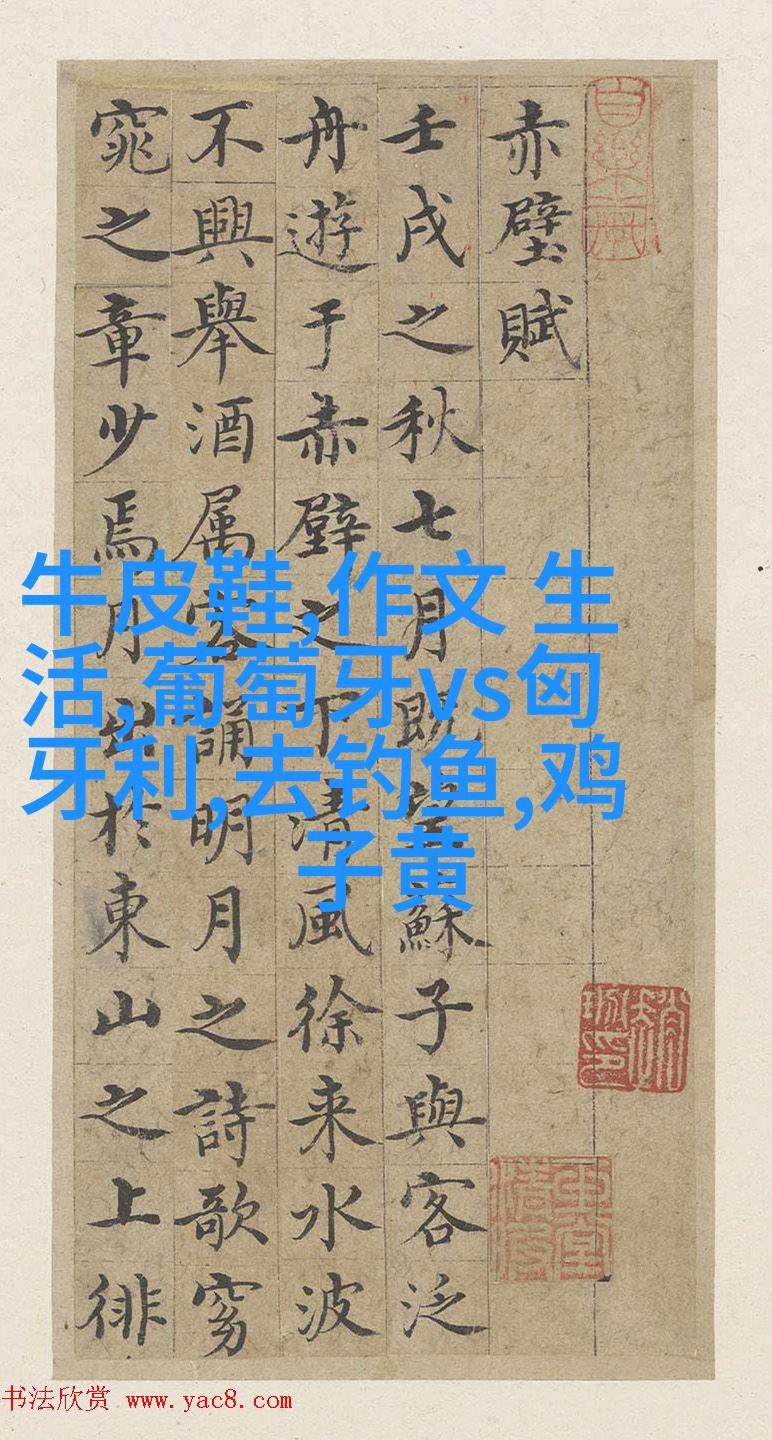 赤壁賦
壬戌之秋七月既望蘇子與客泛
舟遊于赤壁之下清風徐来水波
不興舉酒属客誦明月之詩歌窈
窕之章少焉月出於東山之上徘
牛皮鞋,作文 生
活,葡萄牙vs匈
牙利,去钓鱼,鸡
子黄
书法欣赏 www.yac8.com